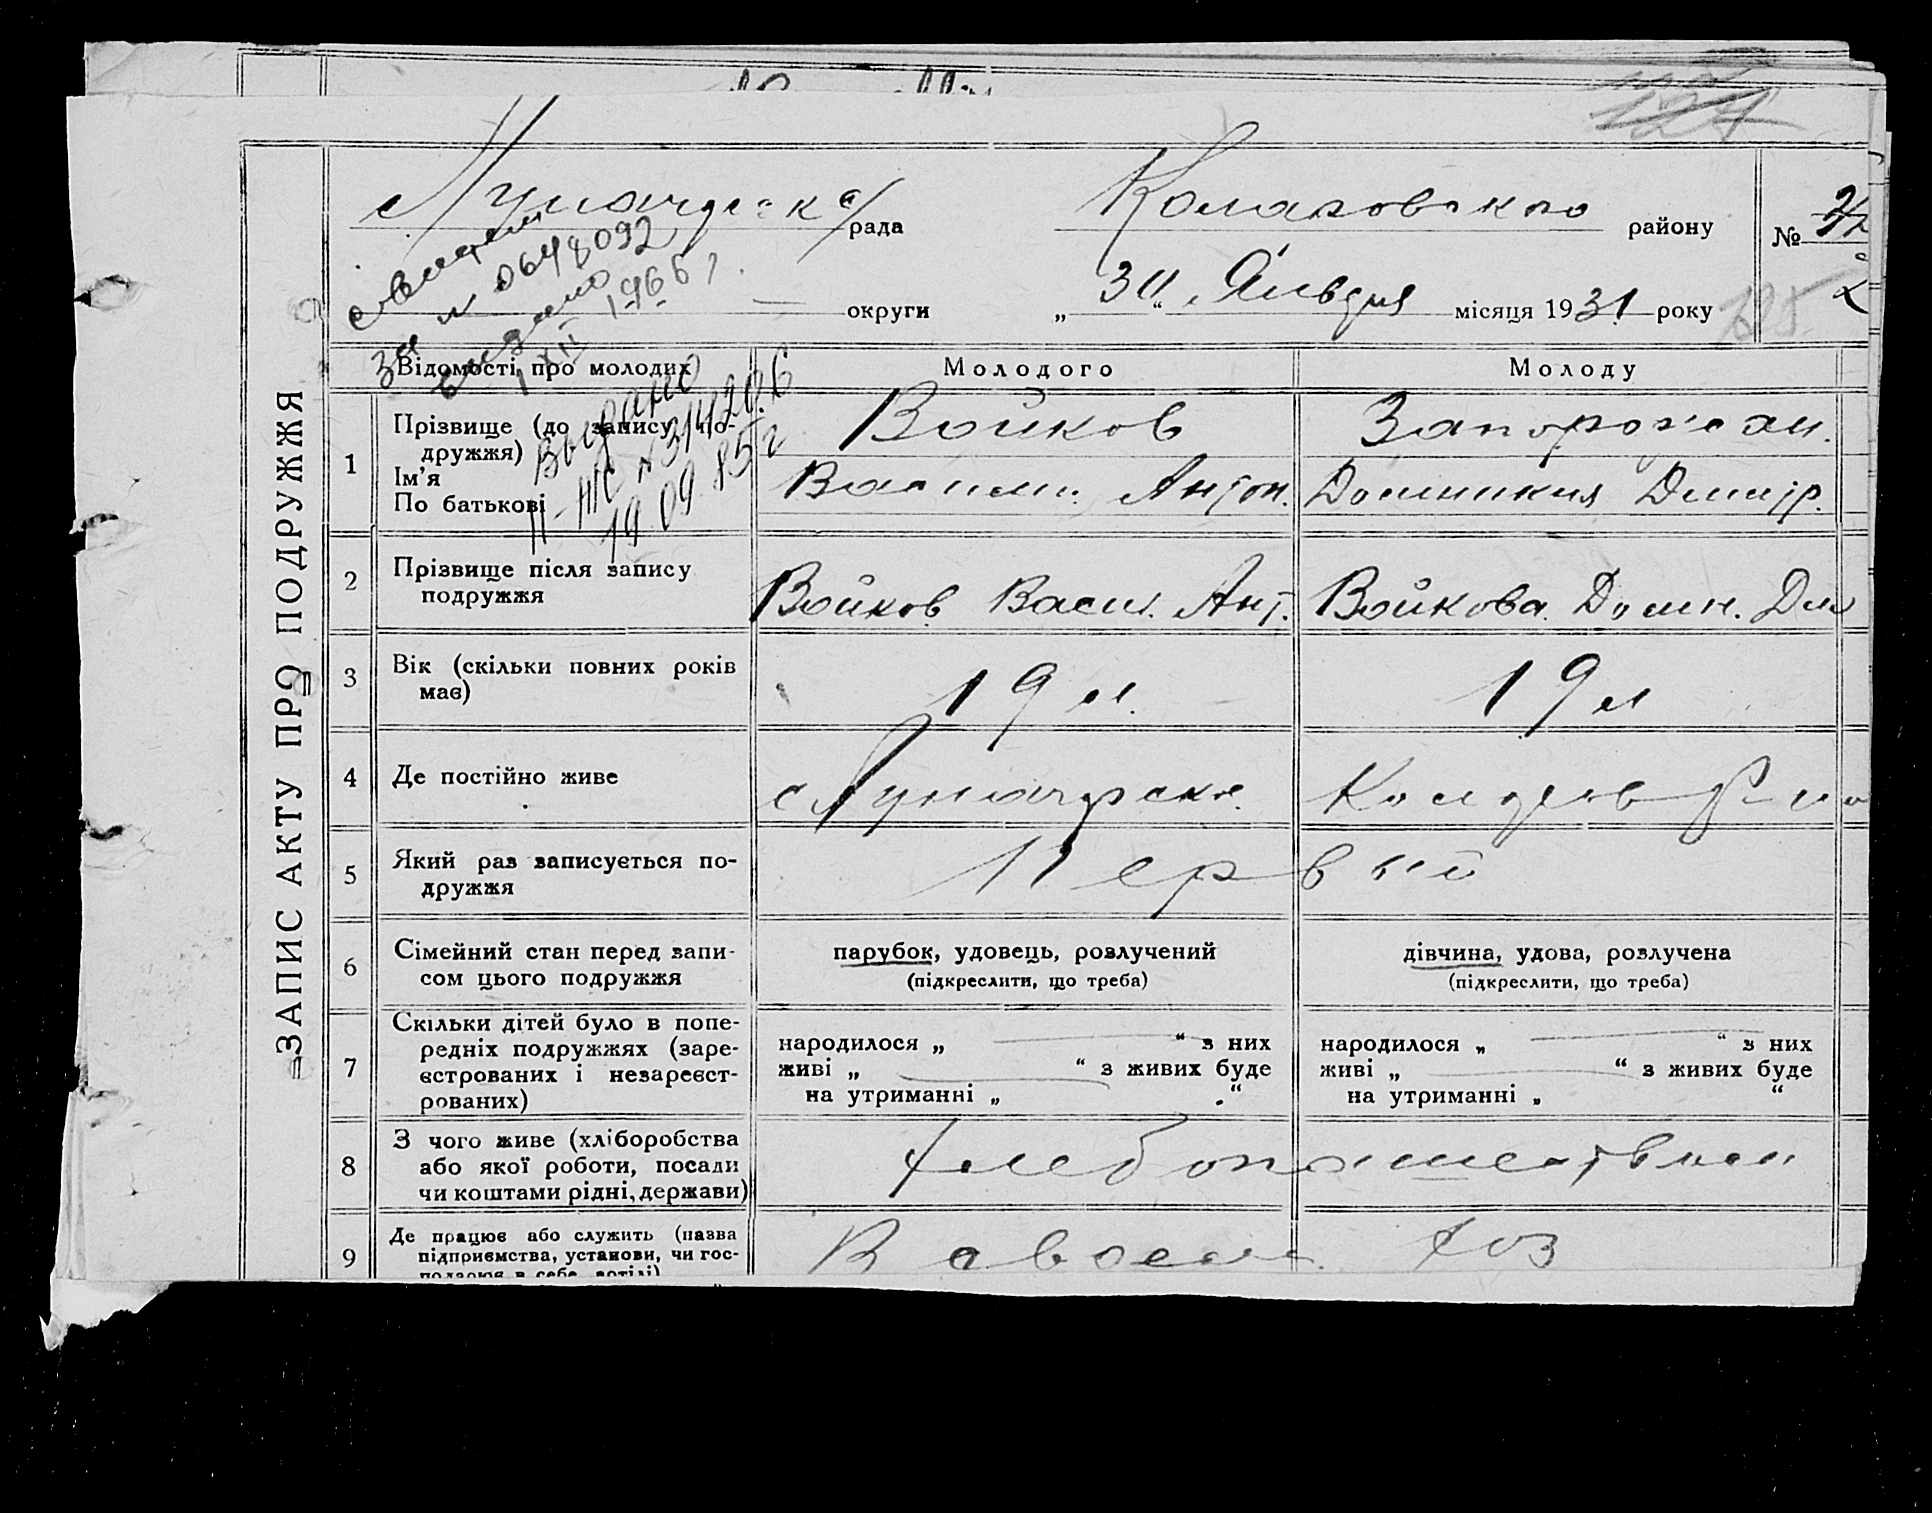 рада
района
району
№
свидет.
за № 0648092
выдано
1 XII 1966 г.
округи
„ 30 “ Января місяця 1931 року
125
Выдано
II-ЖС № 314420.6
19.09.85 г
ЗАПИС АКТУ ПРО ПОДРУЖЖЯ
Відомості про молодих
Молодого
Молоду
1
Прізвище (до запису по-
дружжя)
Ім’я
По батькові
Войков
Васили. Антон.
Запорожан.
Домникия Дмитр.
2
Прізвище після запису
подружжя
Войков Васил. Ант.
Войкова Домн. Дм
3
Вік (скільки повних років
має)
19 л.
19 л
4
Де постійно живе
5
Який раз записується по-
дружжя
Первый
6
Сімейний стан перед запи-
сом цього подружжя
парубок, удовець, розлучений
(підкреслити, що треба)
дівчина, удова, розлучена
(підкреслити, що треба)
7
Скільки дітей було в попе-
редніх подружжях (заре-
єстрованих і незареєст-
рованих)
народилося „ “ з них
живі „ “ з живих буде
на утриманні „ “
народилося „ “ з них
живі „ “ з живих буде
на утриманні „ “
8
З чого живе (хліборобства
або якої роботи, посади
чи коштами рідні, держави)
хлебопашеством
9
Де працює або служить (назва
підприємства, установи, чи гос-
подарює в себе вотілі)
В своем хоз